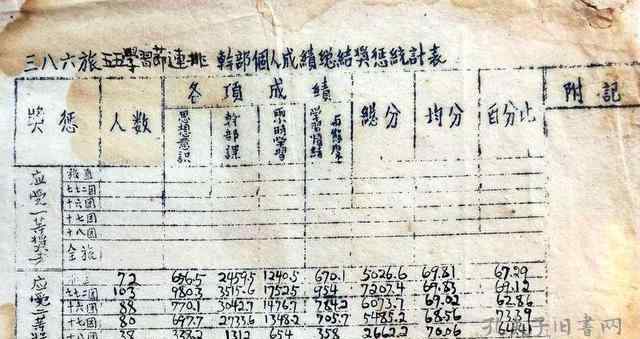 三八六旅五五學習節連排 幹部個人成績總結獎懲統計表
獎懲 人数 各項成績 總分 均分 百分比 附記
思想意识 幹部課 兩小時學習 學習情緒
直
七七二团
十六团
十七团
十八团
全旅
应受一等獎
72 656.5 2459.5 1240.5 670.1 5026.6 69.81 67.29
七七二团 103 980.3 3515.6 1752.5 954 7207.4 69.83 69.12
十六团 88 770.1 3042.7 1476.7 784.2 6073.7 69.02 62.86
十七团 80 697.7 2733.6 1348.2 705.7 5485.2 68.56
十八团 38 338.2 1312 654 358 2662.2 70.06
应受二等獎
孔夫子旧书网